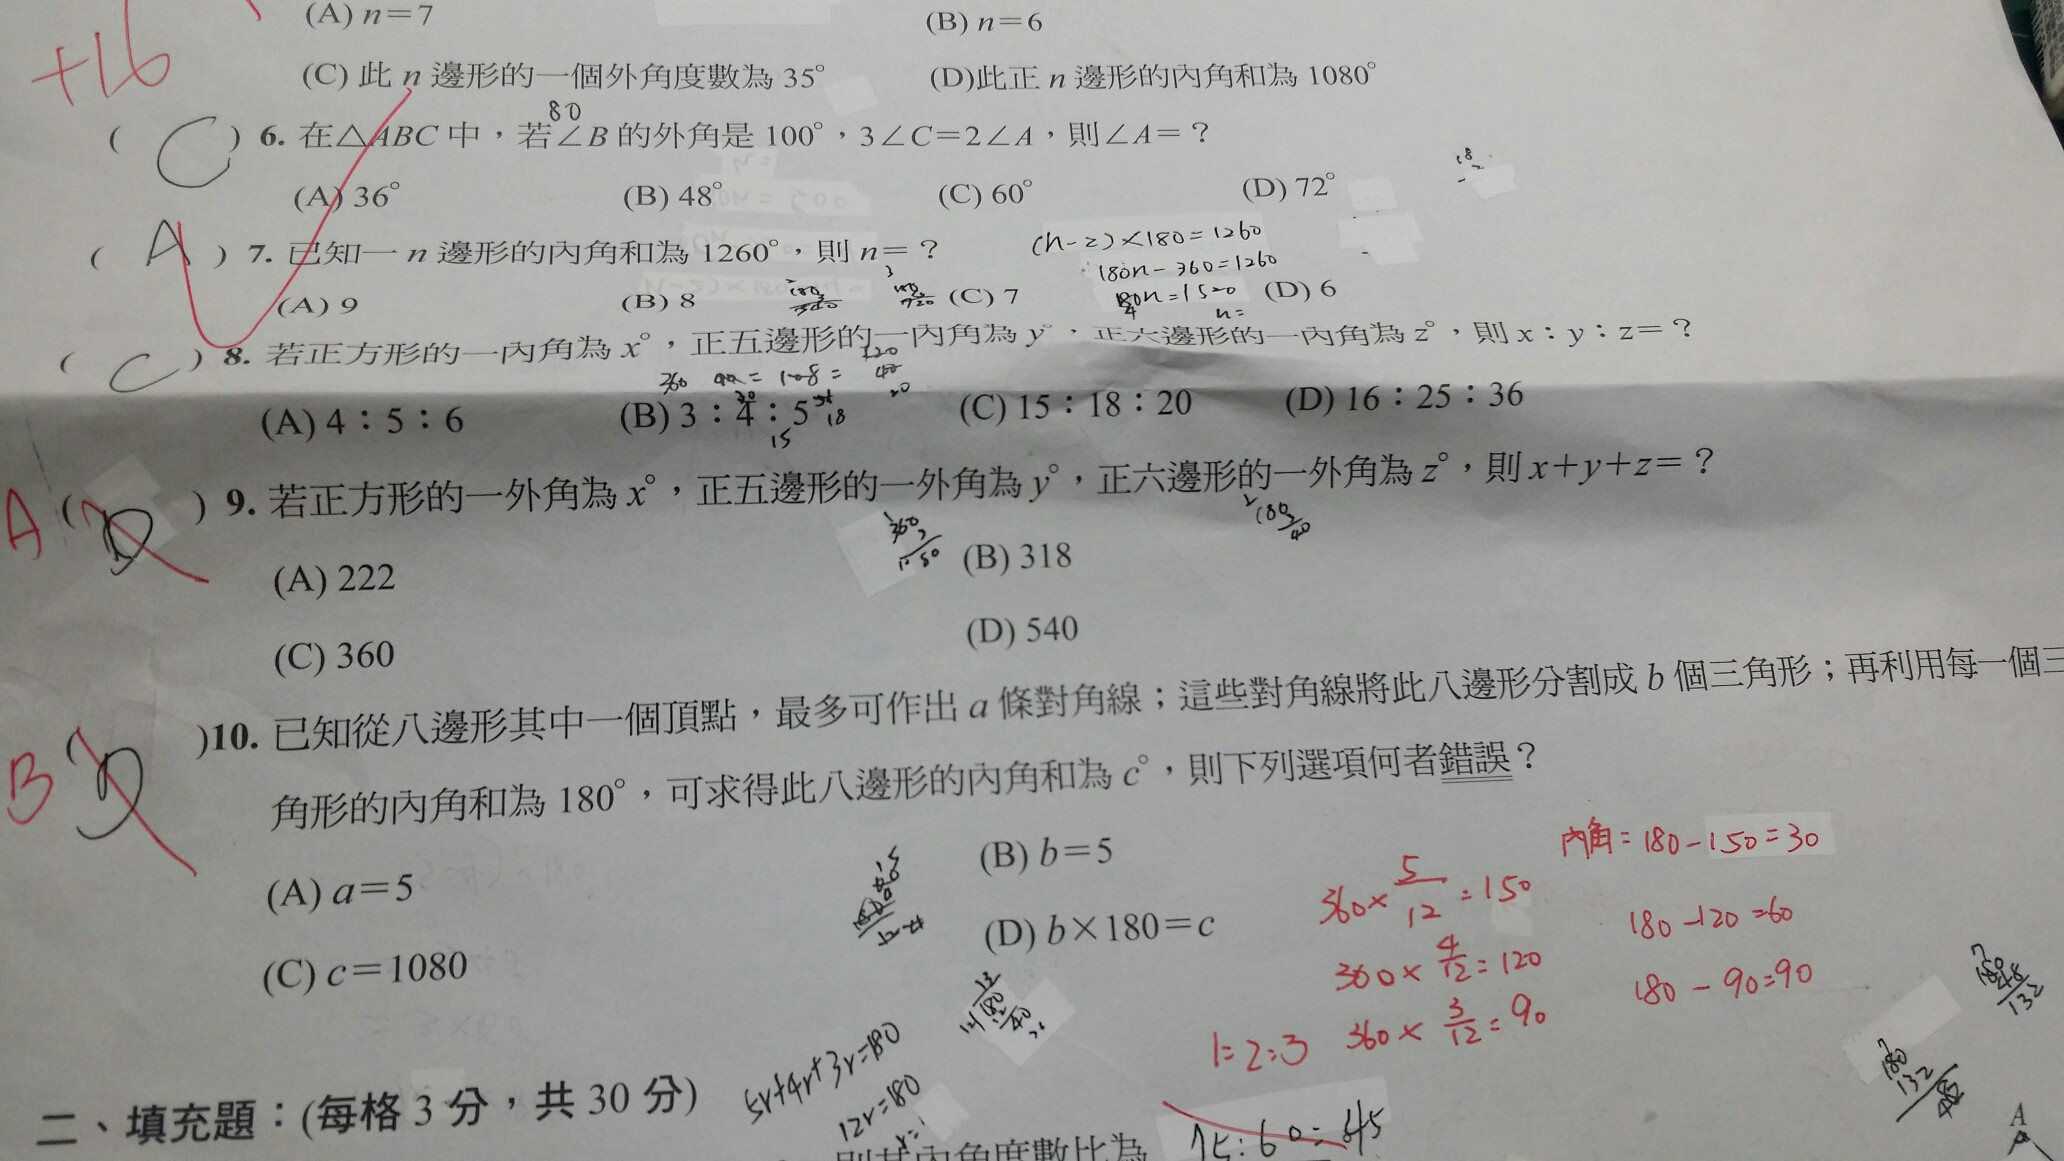 (A) n＝7 (B) n＝6
+16
(C) 此 n 邊形的一個外角度數為 35° (D)此正 n 邊形的內角和為 1080°
80
( C ) 6. 在△ABC 中，若∠B 的外角是 100°，3∠C＝2∠A，則∠A＝？
(A) 36° (B) 48° (C) 60° (D) 72°
( A ) 7. 已知一 n 邊形的內角和為 1260°，則 n＝？
(n-2)×180=1260
180n-360=1260
(A) 9 (B) 8 (C) 7 (D) 6
180n=1500
n=
( C ) 8. 若正方形的一內角為 x°，正五邊形的一內角為 y°，正六邊形的一內角為 z°，則 x：y：z＝？
360 108 = 120
(A) 4：5：6 (B) 3：4：5 (C) 15：18：20 (D) 16：25：36
15 18 20
A ( D ) 9. 若正方形的一外角為 x°，正五邊形的一外角為 y°，正六邊形的一外角為 z°，則 x＋y＋z＝？
(A) 222 (B) 318
(C) 360 (D) 540
B ( D )10. 已知從八邊形其中一個頂點，最多可作出 a 條對角線；這些對角線將此八邊形分割成 b 個三角形；再利用每一個三
角形的內角和為 180°，可求得此八邊形的內角和為 c°，則下列選項何者錯誤？
(A) a＝5 (B) b＝5
(C) c＝1080 (D) b×180＝c
內角=180-150=30
360×5/12=150
180-120=60
360×4/12=120
180-90=90
1:2:3 360×3/12=90
180 48 132
180 132 48
5r+4r+3r=180
12r=180
二、填充題：(每格 3 分，共 30 分)
則其內角度數比為 75:60:45
A